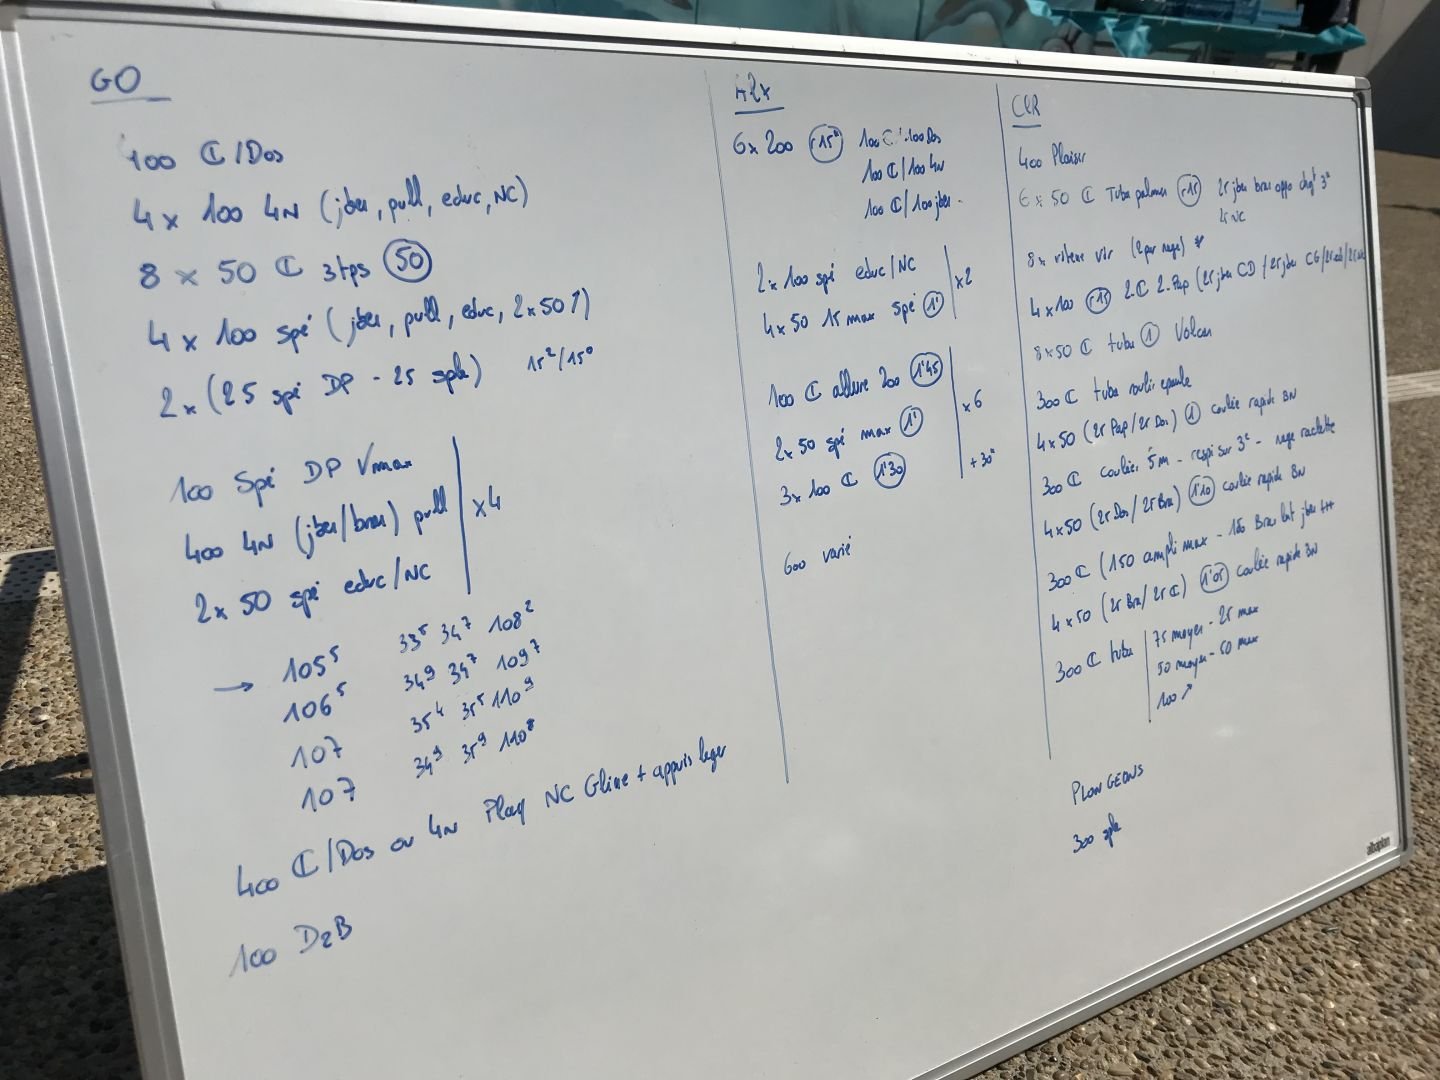 GO
400 C/Dos
4 x 100 4N (jbes, pull, educ, NC)
8 x 50 C 3tps 50
4 x 100 spé (jbes, pull, educ, 2x50↑)
2x (25 spé DP - 25 sple) 15²/15⁰
100 Spé DP Vmax
400 4N (jbes/bras) pull
2x 50 spé educ/NC
x4
→ 105⁵ 33⁵ 34⁷ 108²
106⁵ 34⁹ 34⁷ 109⁷
107 35⁴ 35⁵ 110⁹
107 34⁹ 35⁹ 110⁸
400 C/Dos ou 4N Plaq NC Glisse + appuis leger
100 D2B
6x 200 r15" 100 C/100 Dos
100 C/100 4N
100 C/100 jbes
2x 100 spé educ/NC
4x 50 15 max spé 1'
x2
100 C allure 200 1'45
2x 50 spé max 1'
3x 100 C 1'30
x6
+30"
600 varié
400 Plaisir
6x50 C Tuba palmes r15 25 jbes bras oppo chgt 3²
25 NC
8x vitesse vir (2 par nage)
4x100 r15 2C 2 Pap (25 jbes CD / 25 jbes CG/
8x50 C tuba 1 Volcan
300 C tuba roulis epaule
4x50 (25 Pap/25 Dos) 1 coulée rapide BN
300 C coulées 5m - respi sur 3² - nage raclette
4x50 (25 Dos/25 Bra) 1'10 coulée rapide BN
300 C (150 ampli max - 150 Bras bat jbes ++
4x50 (25 Bra/25 C) 1'05 coulée rapide BN
300 C tuba
75 moyen - 25 max
50 moyen - 50 max
100 ↗
PLONGEONS
300 sple
albaplan